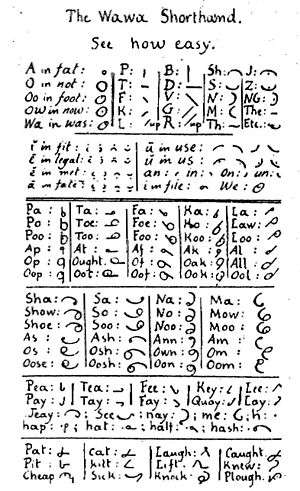 The Wawa Shorthand.
See how easy.
A in fat: P: B: Sh: J:
O in not: T: D: S: Z:
Oo in foot: F: V: N: NG:
Ow in now: K: G: M: The:
Wa in was: L: up R: up Th: Etc.
i in fit: ū in use:
ē in legal: ŭ in us:
ĕ in met: an: in: On: un:
ā in fate: i in file: We:
Pa: Ta: Fa: Ka: La:
Po: Toe: Foe: Ko: Law:
Poo: Too: Foo: Koo: Loo:
Ap: At: Af: Ak: Al:
Op: Ought: Of: Oak: All:
Oop: Oot: Oof: Ook: Ool:
Sha: Sa: Na: Ma:
Show: So: No: Mow:
Shoe: Soo: Noo: Moo:
As: Ash: Ann: Am:
Os: Osh: Own: Om:
Oose: Oosh: Oon: Oom:
Pea: Tea: Fee: Key: Lee:
Pay: Tay: Fay: Quay: Lay:
Jeay: See: nay: me: h:
hap: hat: half: hash:
Pat: Cat: Laugh: Caught:
Pit: kilt: Lift: Knew:
Cheap Sick: Knock Plough.